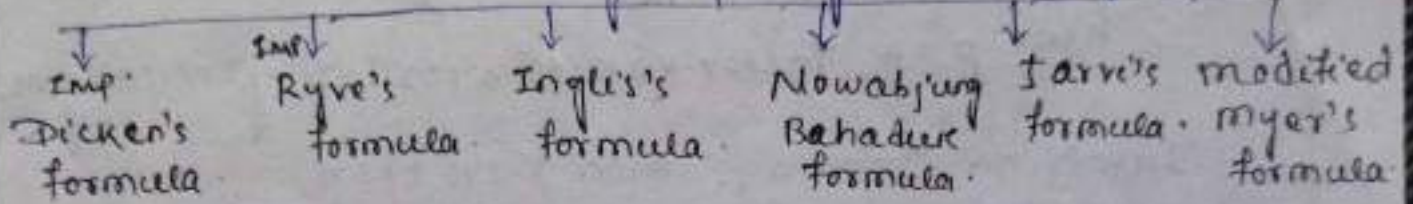 Imp. Imp
Dicken's formula
Ryve's formula.
Inglis's formula.
Nowabjung Bahadure formula.
Jarvi's formula.
modified myer's formula